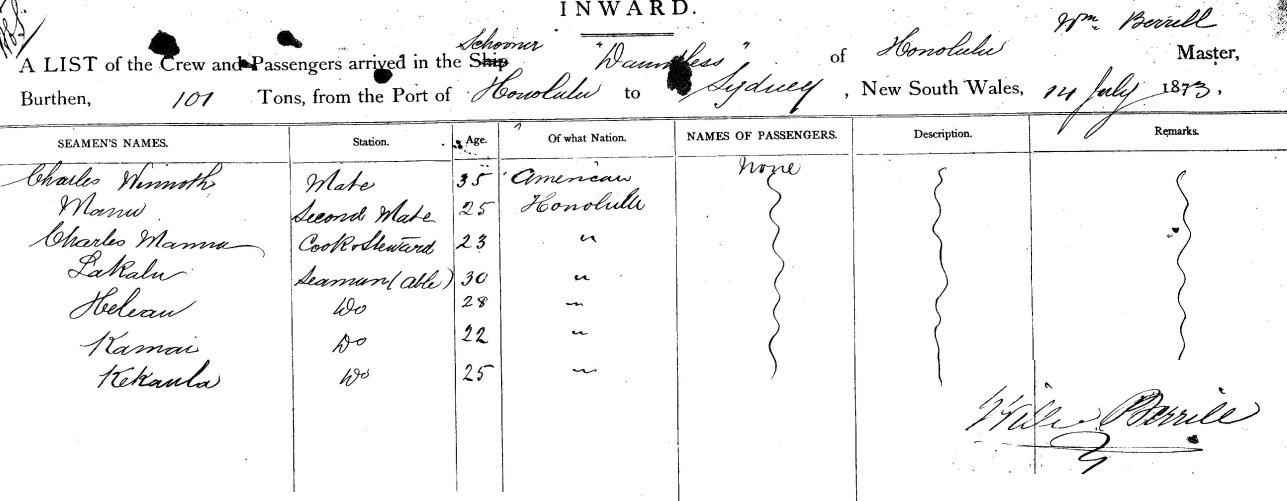 INWARD.
Schooner Wm Berrell
A LIST of the Crew and Passengers arrived in the Ship "Dauntless" of Honolulu Master,
Burthen, 101 Tons, from the Port of Honolulu to Sydney, New South Wales, 14 July 1873,
SEAMEN'S NAMES. Station. Age. Of what Nation. NAMES OF PASSENGERS. Description. Remarks.
Charles Winnoth Mate 35 American None
Manu Second Mate 25 Honolulu
Charles Manna Cook & Steward 23 "
Lakalu Seaman (able) 30 "
Heleau Do 28 "
Kamai Do 22 "
Kekaula Do 25 "
Berrill